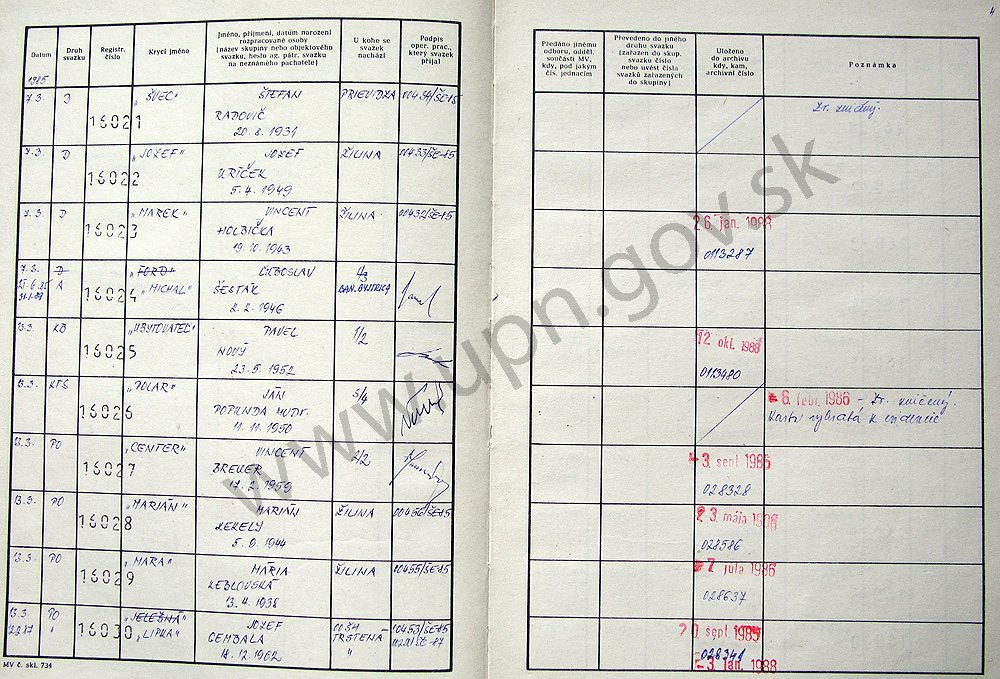 4
Datum
Druh svazku
Registr. číslo
Krycí jméno
Jméno, příjmení, datum narození rozpracované osoby (název skupiny nebo objektového svazku, heslo ag. pátr. svazku na neznámého pachatele)
U koho se svazek nachází
Podpis oper. prac., který svazek přijal
Předáno jinému odboru, odděl. součásti MV, kdy, pod jakým čís. jednacím
Převedeno do jiného druhu svazku (zařazen do skup. svazku číslo nebo uvést čísla svazků zařazených do skupiny)
Uloženo do archivu kdy, kam, archivní číslo
Poznámka
1985
7.3. D 16021 „ŠVEC" ŠTEFAN PRIEVIDZA 00434/ŠE-85
RADOVIČ
20.8.1931
Zv. zničený.
7.3. D 16022 „JOZEF" JOZEF ŽILINA 00433/ŠE-85
URÍČEK
5.4.1949
7.3. D 16023 „MAREK" VINCENT ŽILINA 00432/ŠE-85
HOLBIČKA
19.10.1943
26. jan. 1988
0113287
7.3. D 16024 „FORD" ĽUBOSLAV
A „MICHAL" ŠESTÁK BAN. BYSTRICA
2.2.1946
13.3. KB 16025 „UBYTOVATEĽ" PAVEL 1/2
NOVÝ
23.5.1952
12. okt. 1988
0113480
13.3. KTS 16026 „POLAR" JÁN 5/4
MUDr.
11.11.1950
6. febr. 1986 – Zv. zničený.
13.3. PO 16027 „CENTER" VINCENT 2/2
BREUER
17.2.1959
-3. sept. 1986
028328
13.3. PO 16028 „MARIÁN" MARIÁN ŽILINA 00456/ŠE-85
KEKELY
5.9.1944
23. mája 1986
028586
13.3. PO 16029 „MARA" MÁRIA ŽILINA 00455/ŠE-85
KEBLOVSKÁ
13.4.1938
7. júla 1986
028637
13.3. PO 16030 „JELEŠNÁ" JOZEF 00453/ŠE-85
" „LIPKA" GEMBALA TRSTENÁ
18.12.1962 "
sept. 1985
028341
-3. jan. 1988
MV č. skl. 734
www.upn.gov.sk